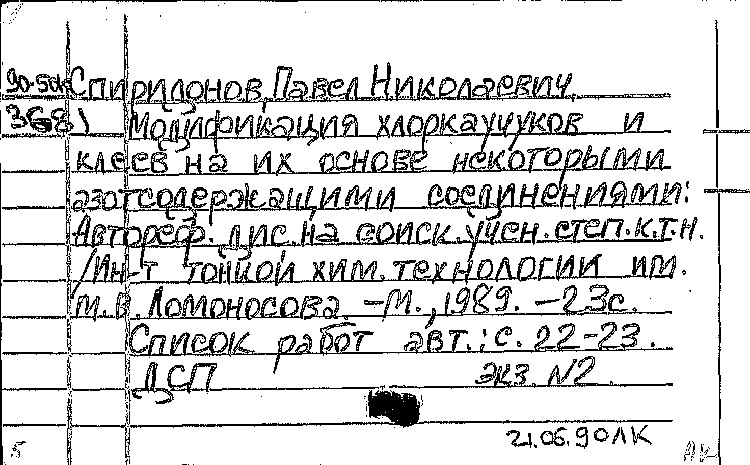 90-5dk Спиридонов, Павел Николаевич.
368) Модификация хлоркаучуков и
клеев на их основе некоторыми
азотсодержащими соединениями:
Автореф. дис. на соиск. учен. степ. к.т.н.
/Ин-т тонкой хим. технологии им.
М.В. Ломоносова. -М., 1989. -23с.
Список работ авт.: с. 22-23.
ДСП экз. N2.
21.06.90 ЛК
5